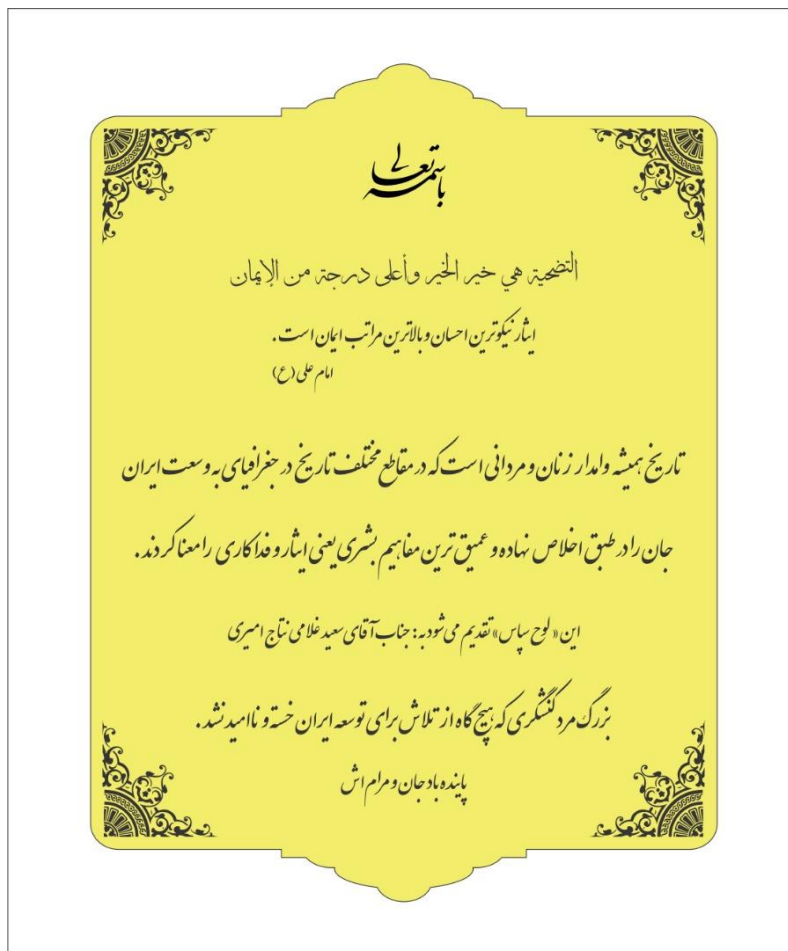 باسمه تعالی
التضحية هي خير الخير وأعلى درجة من الإيمان
ایثار نیکوترین احسان و بالاترین مراتب ایمان است.
امام علی (ع)
تاریخ همیشه وامدار زنان و مردانی است که در مقاطع مختلف تاریخ در جغرافیای به وسعت ایران
جان را در طبق اخلاص نهاده و عمیق ترین مفاهیم بشری یعنی ایثار و فداکاری را معنا کردند.
این «لوح سپاس» تقدیم می شود به: جناب آقای سعید غلامی نتاج امیری
بزرگ مرد کنشگری که هیچ گاه از تلاش برای توسعه ایران خسته و ناامید نشد.
پاینده باد جان و مرام اش